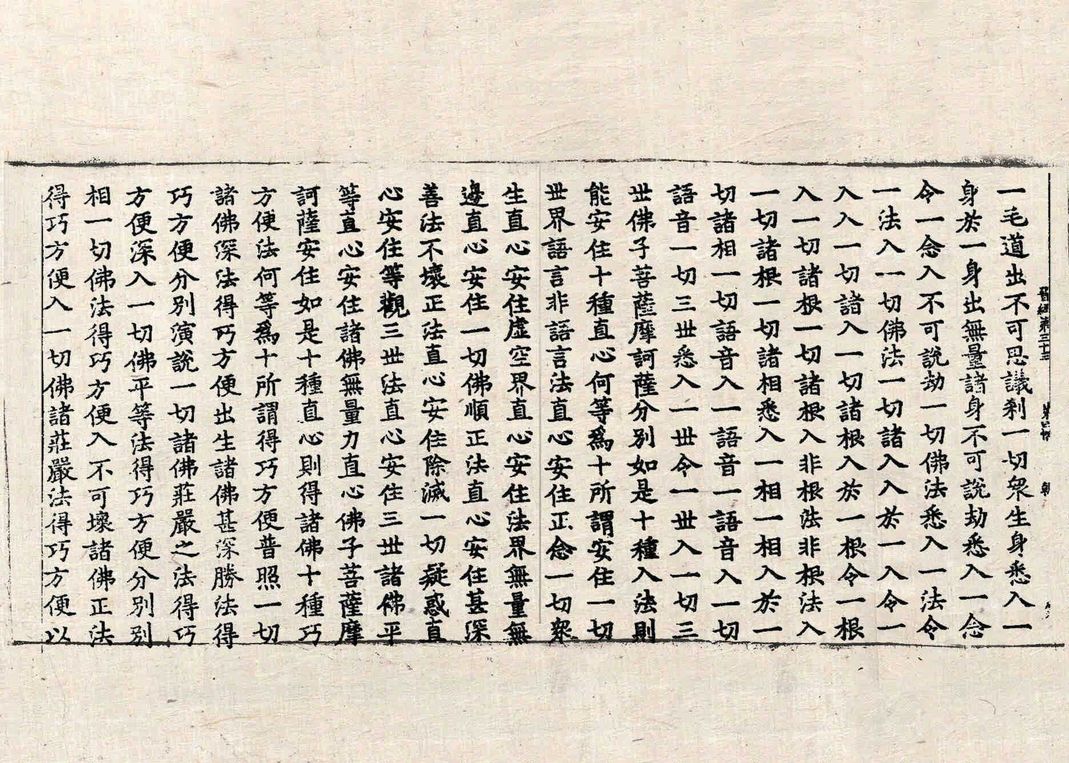 一毛道出不可思議刹一切衆生身悉入一
身於一身出無量諸身不可說劫悉入一念
令一念入不可說劫一切佛法悉入一法令
一法入一切佛法一切諸入入於一入令一
入入一切諸入一切諸根入於一根令一根
入一切諸根一切諸根入非根法非根法入
一切諸根一切諸相悉入一相一相入於一
切諸相一切語音入一語音一語音入一切
語音一切三世悉入一世令一世入一切三
世佛子菩薩摩訶薩分別如是十種入法則
能安住十種直心何等爲十所謂安住一切
世界語言非語言法直心安住正念一切衆
生直心安住虛空界直心安住法界無量無
邊直心安住一切佛順正法直心安住甚深
善法不壞正法直心安住除滅一切疑惑直
心安住等觀三世法直心安住三世諸佛平
等直心安住諸佛無量力直心佛子菩薩摩
訶薩安住如是十種直心則得諸佛十種巧
方便法何等爲十所謂得巧方便普照一切
諸佛深法得巧方便出生諸佛甚深勝法得
巧方便分別演說一切諸佛莊嚴之法得巧
方便深入一切佛平等法得巧方便分別別
相一切佛法得巧方便入不可壞諸佛正法
得巧方便入一切佛諸莊嚴法得巧方便以